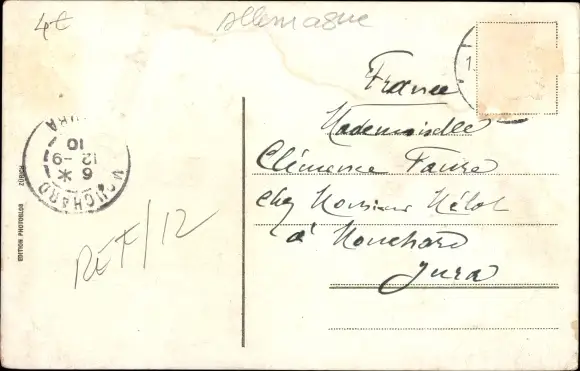 4€
Allemagne
1.
France
Mademoiselle
Clémence Faure
chez Monsieur Mélot
à Mouchard
Jura
MOUCHARD
JURA
6 *
12 -9
10
EDITION PHOTOGLOB ZÜRICH
REF/12